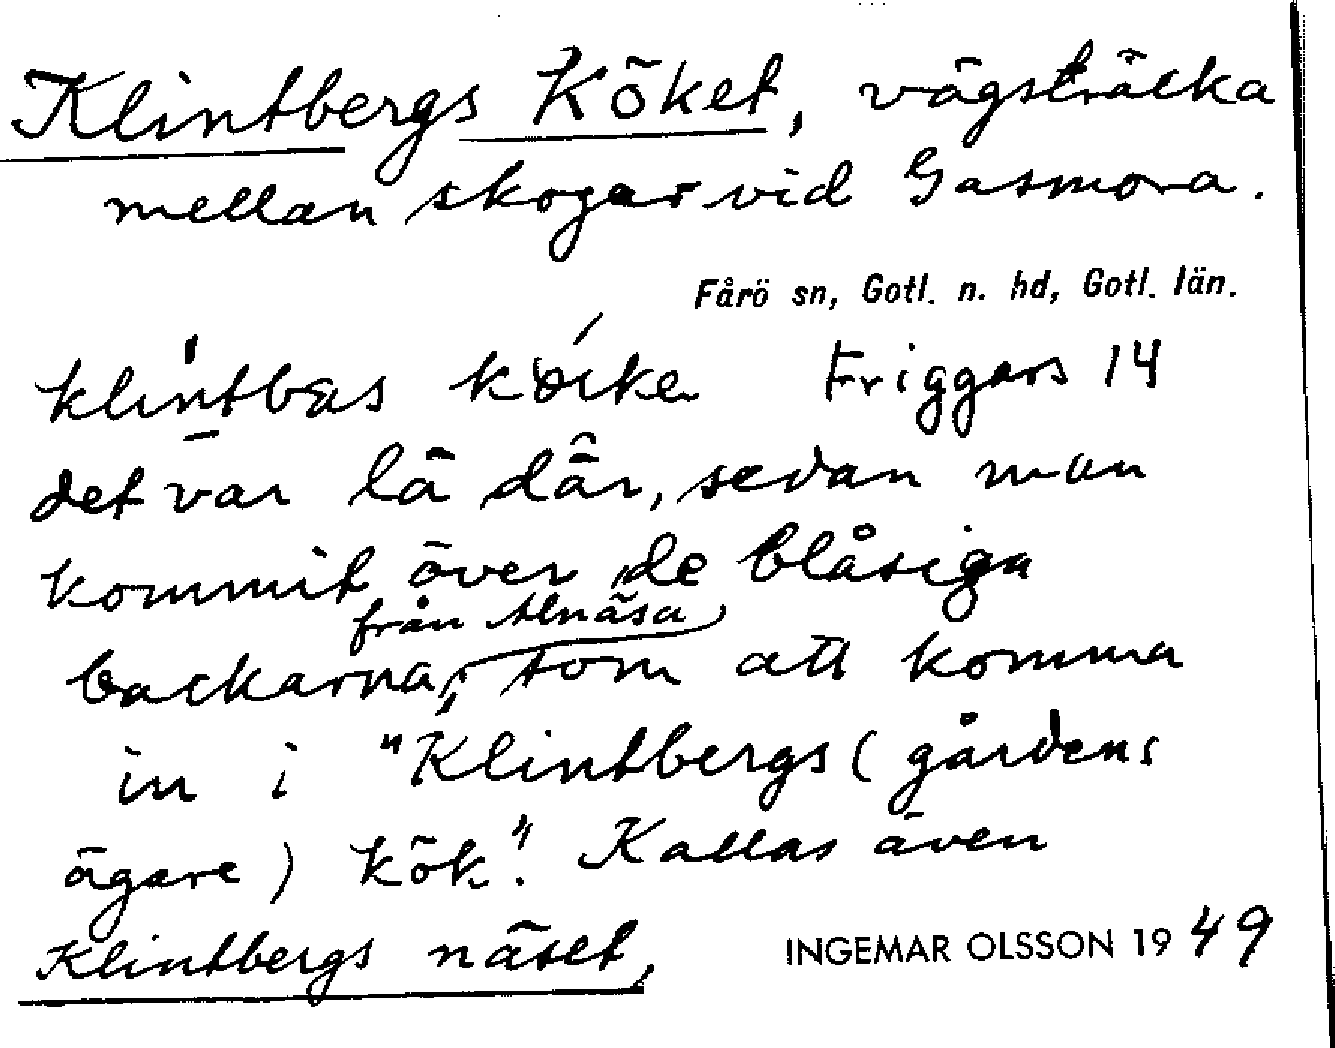 Klintbergs Köket, vägsträcka
mellan skogar vid Gasmora.
Fårö sn, Gotl. n. hd, Gotl. län.
Friggars 14
det var lä där, sedan man
kommit över de blåsiga
från Alnäsa
backarna, som att komma
in i "Klintbergs (gårdens
ägare) kök". Kallas även
Klintbergs näset,
INGEMAR OLSSON 1949